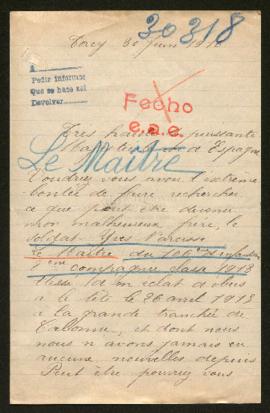 30318
Torcy 30 juin 191
A
Pedir informes
Que se hace así
Devolver
Fecho
e.a.e.
Très haute et puissante
Majesté d'Espagne
Le Maitre
Voudriez vous avoir l'extrême
bonté de faire rechercher
ce que peut être devenu
mon malheureux frère, le
soldat Yves
Le Maitre du 106ème Infanterie
compagnie classe 1913
blessé d'un éclat d'obus
à la tête le 26 avril 1915
à la grande tranchée de
Calonne, et dont nous
nous n'avons jamais eu
aucune nouvelles depuis
Peut être pourrez vous